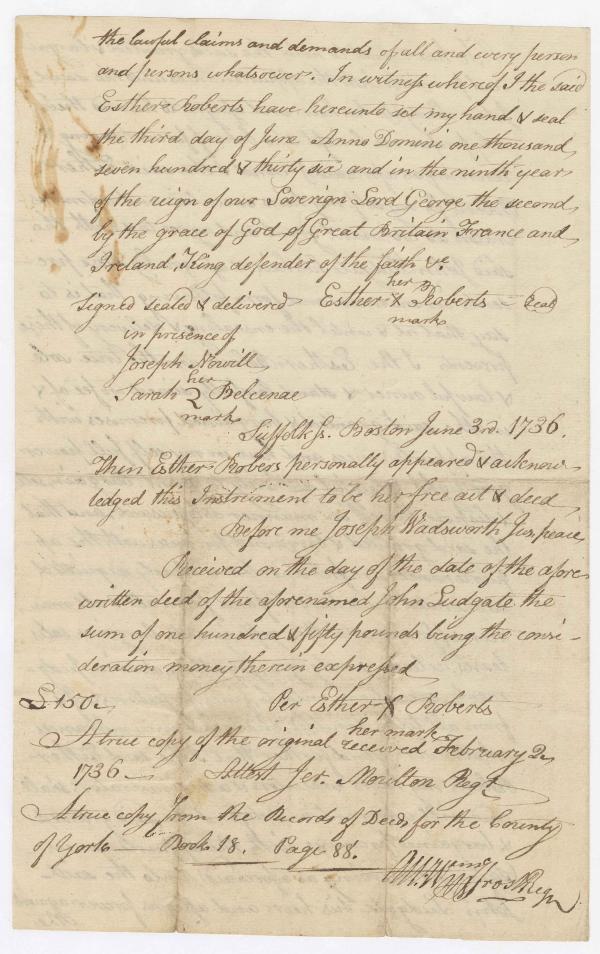 the lawful claims and demands of all and every person
and persons whatsoever. In witness whereof I the said
Esther Roberts have hereunto set my hand & seal
the third day of June Anno Domini one thousand
seven hundred & thirty six and in the ninth year
of the reign of our Soverign Lord George the second
by the grace of God, of Great Britain France and
Ireland, King defender of the faith &c.
Signed sealed & delivered Esther her X mark Roberts - Seal
in presence of
Joseph Nowill
Sarah her 2 mark Belcenae
Suffolk Ss. Boston June 3rd. 1736.
Then Esther Robers personally appeared & acknow-
ledged this Instrument to be her free act & deed,
Before me Joseph Wadsworth Jus, peace
Received on the day of the date of the afore
written deed of the aforenamed John Ludgate the
sum of one hundred & fifty pounds being the consi-
deration money therein expressed
£150. Per Esther X Roberts
her mark
A true copy of the original received February 2
1736 - Attest Jer. Moulton Regr.
A true copy from the Records of Deeds for the County
of York - Book 18. Page 88.
Att. Wm Frost Regr